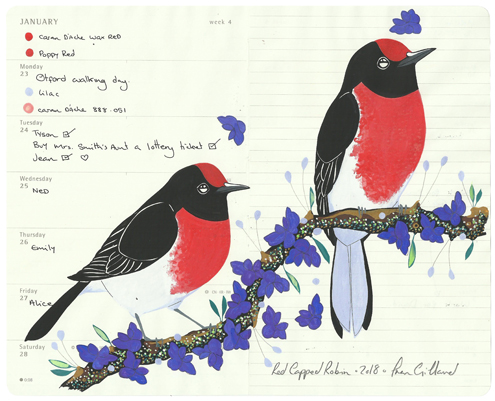 JANUARY
week 4
Caran D'Ache wax Red
Poppy Red
Monday
23
Otford walking day.
Lilac
caran D'Ache 888.051
Tuesday
24
Tyson ☑
Buy Mrs. Smith's Aunt a lottery ticket ☑
Jean ☑ ♡
Wednesday
25
Ned
Thursday
26
Emily
Friday
27
Alice
Saturday
28
Red Capped Robin - 2018 -